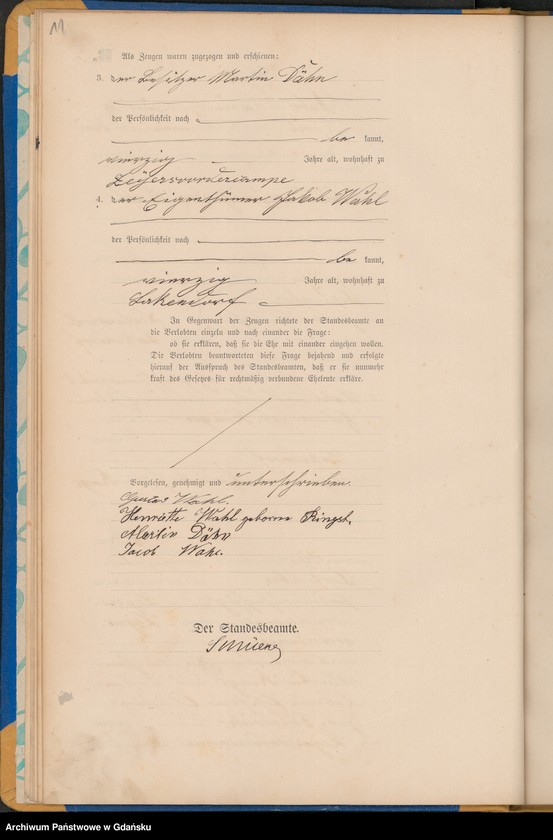 11
Als Zeugen waren zugezogen und erschienen:
3. der Besitzer Martin Dähn
der Persönlichkeit nach
be kannt,
vierzig Jahre alt, wohnhaft zu
Zeyersvordercampe
4. der Eigenthümer Jakob Wahl
der Persönlichkeit nach
be kannt,
vierzig Jahre alt, wohnhaft zu
Lakendorf
In Gegenwart der Zeugen richtete der Standesbeamte an
die Verlobten einzeln und nach einander die Frage:
ob sie erklären, daß sie die Ehe mit einander eingehen wollen.
Die Verlobten beantworteten diese Frage bejahend und erfolgte
hierauf der Ausspruch des Standesbeamten, daß er sie nunmehr
kraft des Gesetzes für rechtmäßig verbundene Eheleute erkläre.
Vorgelesen, genehmigt und unterschrieben.
Gustav Wahl.
Henriette Wahl geborne
Martin Dähn
Jacob Wahl.
Der Standesbeamte.
Archiwum Państwowe w Gdańsku